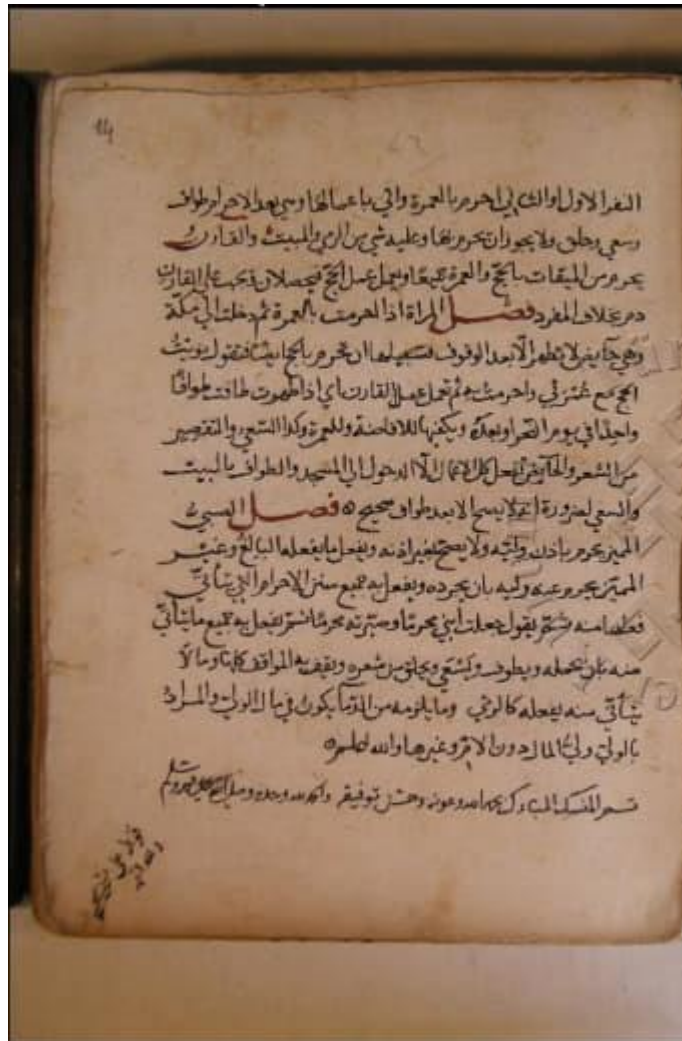 14
النفر الاول او الثاني احرم بالعمرة واتى باعمالها وهي بعد الاحرام طواف
وسعي وحلق ولا يجوز ان يحرم بها وعليه شي من الرمي والمبيت والقارن
يحرم من الميقات بالحج والعمرة جميعا ويعمل عمل الحج فيحصلان ويجب على القارن
دم بخلاف المفرد فصل المراة اذا احرمت بالعمرة ثم دخلت الى مكة
وهي حايض لا تطهر الا بعد الوقوف فسبيلها ان تحرم بالحج فتقول نويت
الحج مع عمرتي واحرمت به ثم تعمل عمل القارن اي اذا طهرت طافت طوافا
واحدا في يوم النحر او بعده ويكفيها للافاضة وللعمرة وكذا السعي والتقصير
من الشعر والحايض تفعل كل الاعمال الا الدخول الى المسجد والطواف بالبيت
والسعي لضرورة انه لا يصح الا بعد طواف صحيح ٥ فصل الصبي
المميز يحرم باذن وليه ولا يصح بغير اذنه ويفعل ما يفعله البالغ وغير
المميز يحرم عنه وليه بان يجرده ويفعل به جميع سنن الاحرام التي يتأتى
فعلها منه ثم يقول جعلت ابني محرما وصيرته محرما ثم يفعل به جميع ما يتأتى
منه بان يحمله ويطوف ويسعى ويحلق من شعره ويقف به المواقف كلها وما لا
يتأتى منه يفعله كالرمي وما يلزمه من الدما يكون في مال الولي والمراد
بالولي ولي المال دون الام وغيرها والله اعلم ٥
تم المنسك المبارك بحمد الله وعونه وحسن توفيقه والحمد لله وحده وصلى الله على وسلم